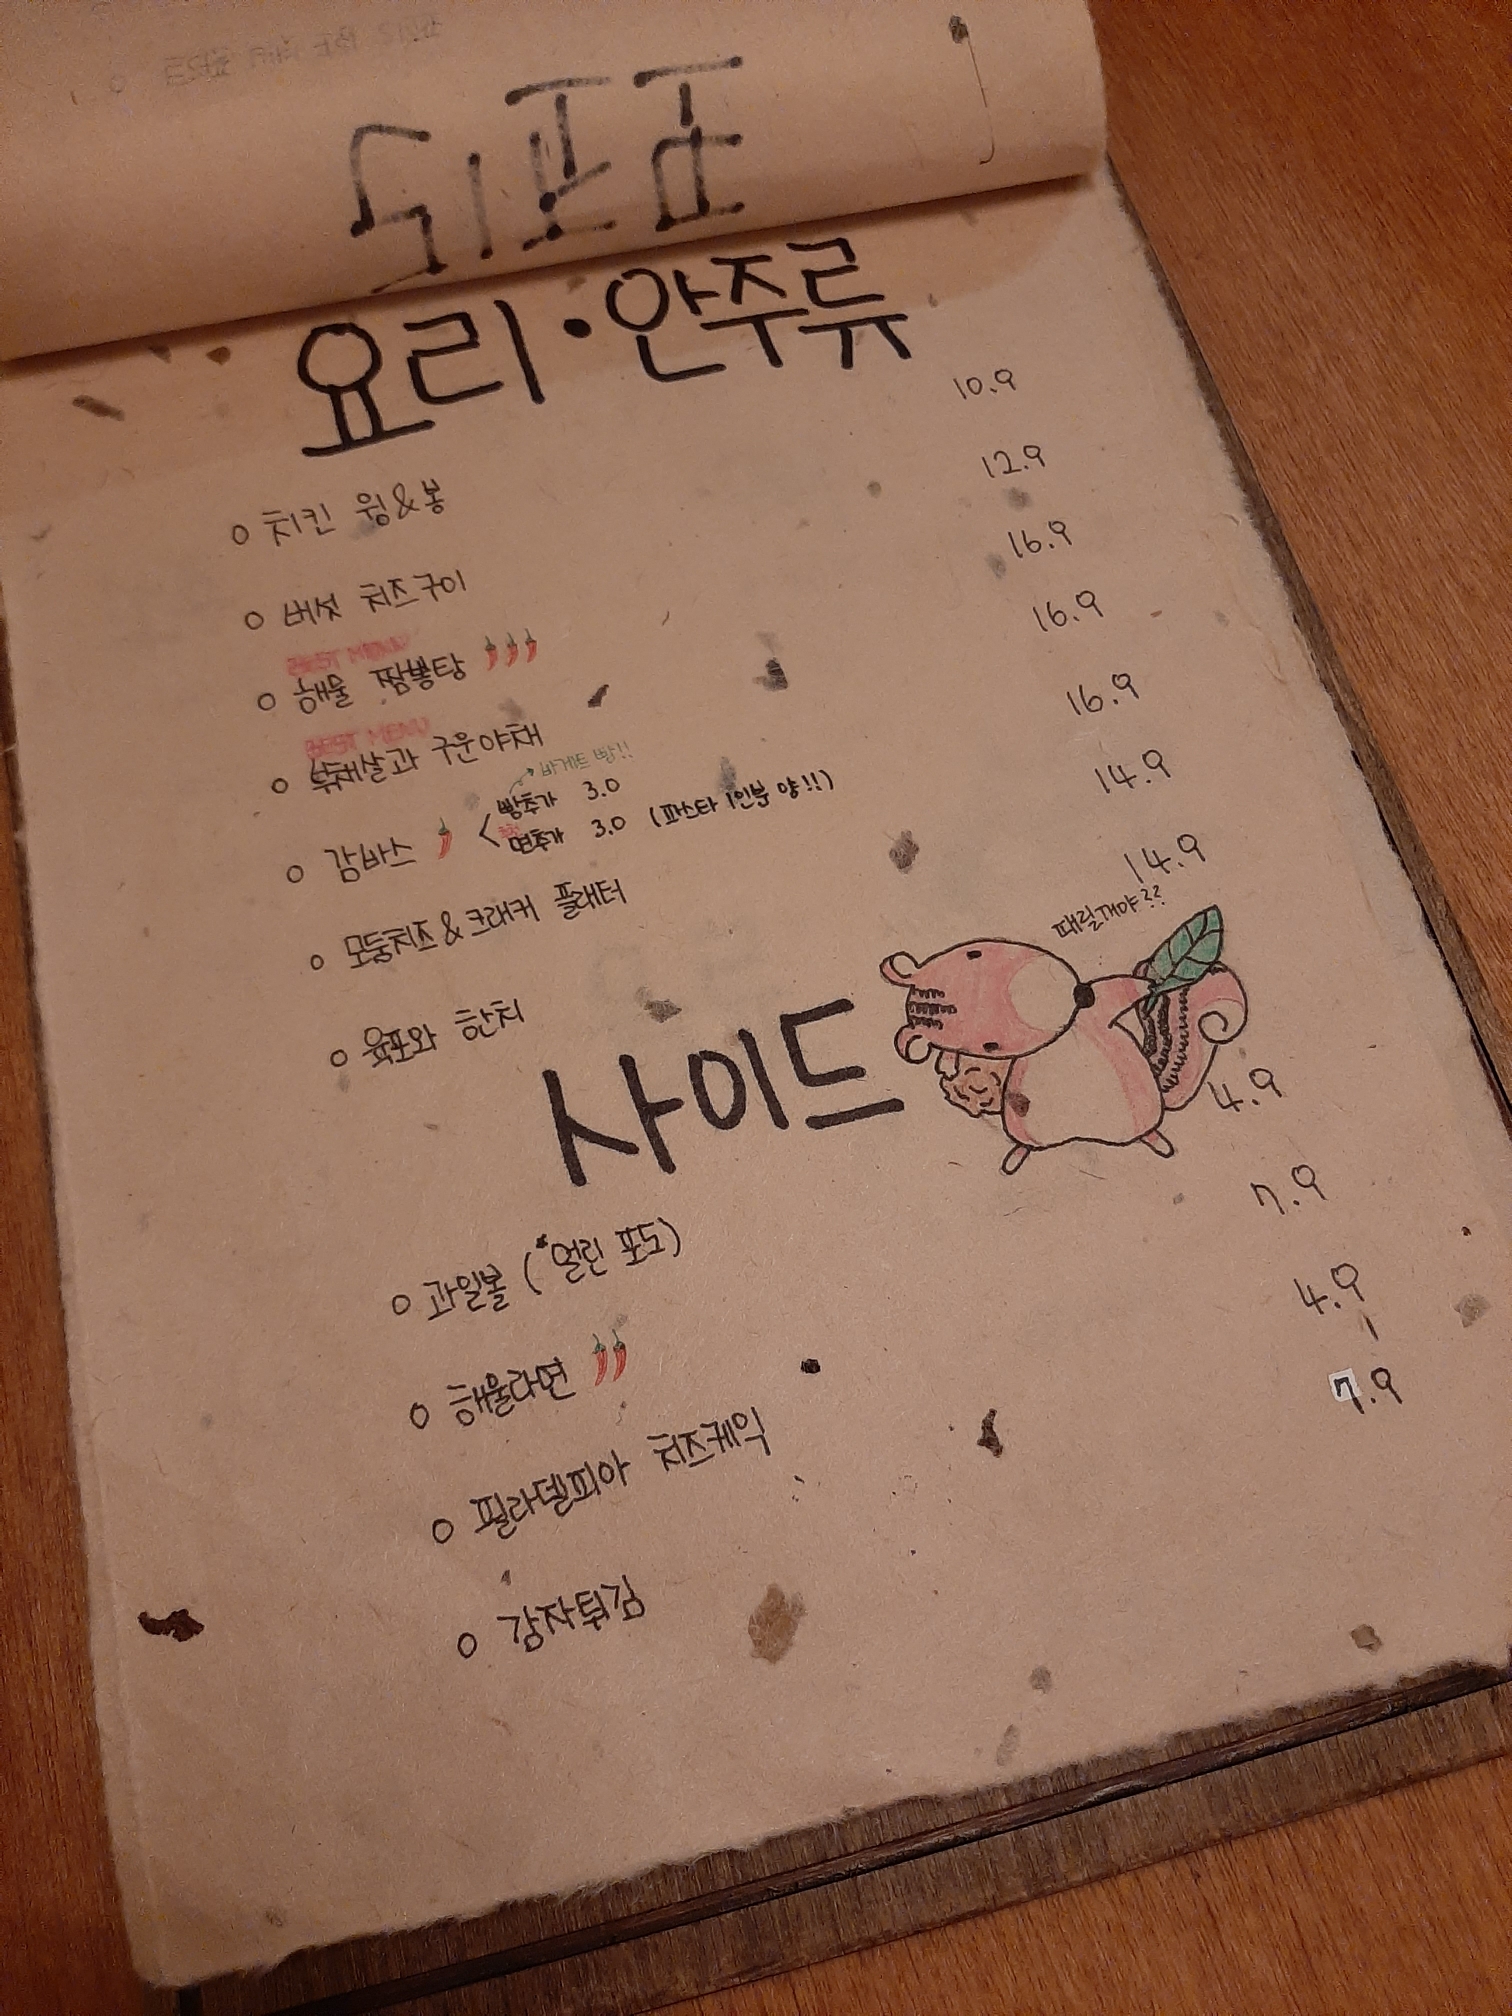 요리·안주류
o 치킨 윙&봉 10.9
o 버섯 치즈구이 12.9
BEST MENU
o 해물 짬뽕탕 16.9
BEST MENU
o 부채살과 구운야채 16.9
바게트 빵!!
빵추가 3.0
o 감바스 16.9
면추가 3.0 (파스타 1인분 양!!)
o 모둠치즈&크래커 플래터 14.9
o 육포와 한치 14.9
때릴꺼야??
사이드
o 과일볼 (*얼린 포도) 4.9
o 해물라면 7.9
o 필라델피아 치즈케익 4.9
o 감자튀김 7.9